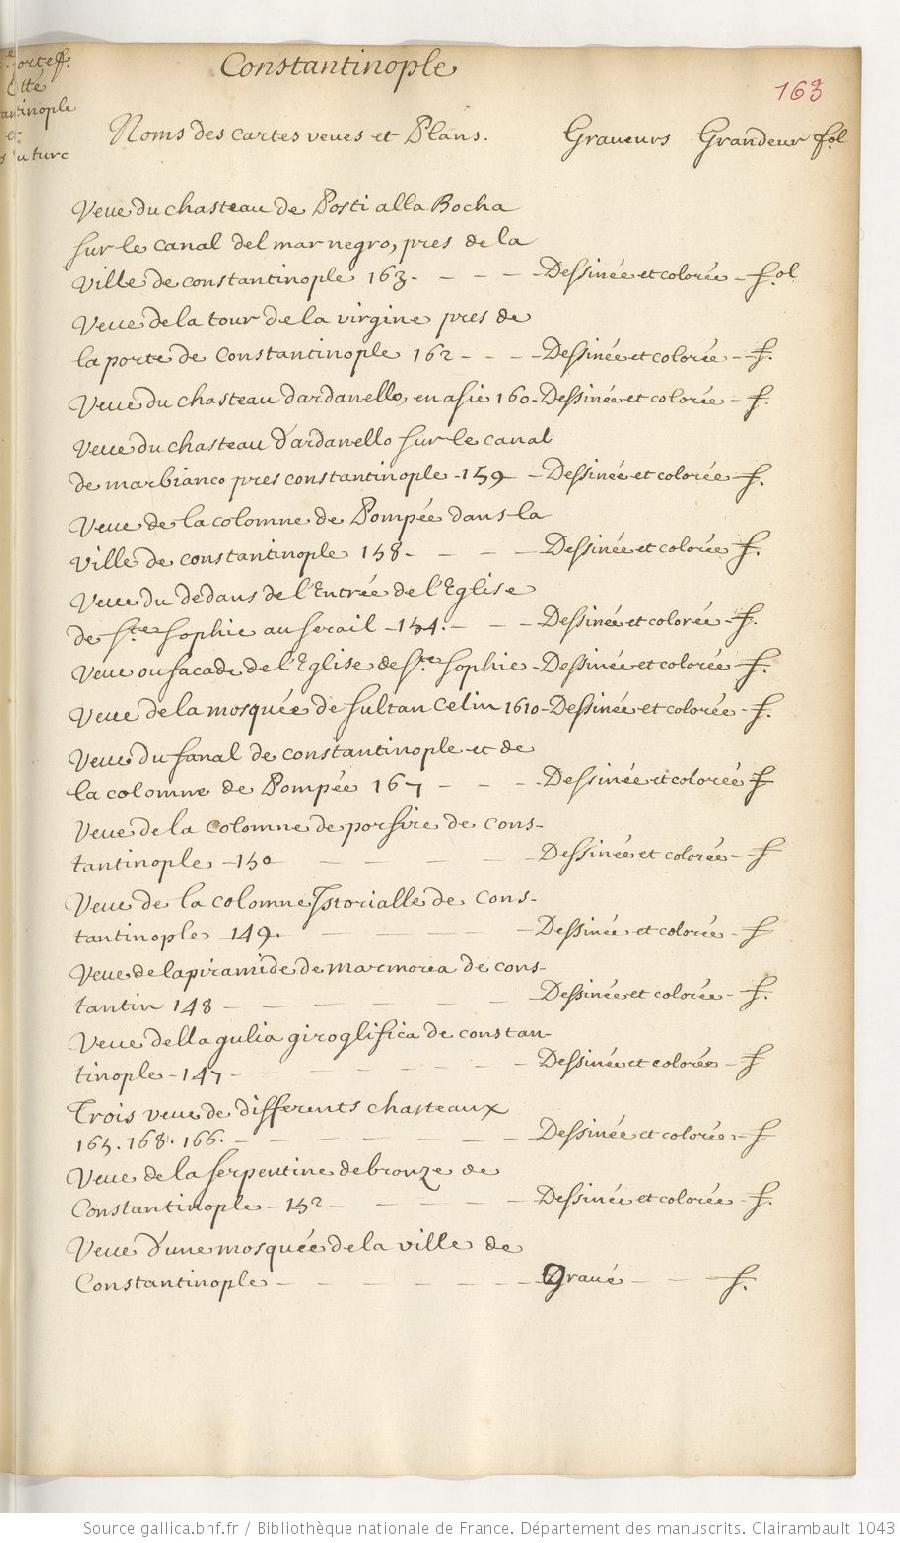 Constantinople
163
Noms des cartes veues et Plans. Graveurs Grandeur fol
Veue du chasteau de Posti alla Rocha
sur le canal del mar negro, pres de la
Ville de constantinople 163. - - - Dessinée et colorée - fol
Veue de la tour de la virgine pres de
la porte de Constantinople 162 - - - Dessinée et colorée - f.
Veue du chasteau dardanello, en asie 160 - Dessinée et colorée - f.
Veue du chasteau dardanello sur le canal
de mar bianco pres constantinople - 159 - Dessinée et colorée - f.
Veue de la colomne de Pompée dans la
Ville de constantinople 158 - - - Dessinée et colorée f.
Veue du dedans de l'Entrée de l'Eglise
de Ste Sophie au serail - 154. - - - Dessinée et colorée - f.
Veue ou facade de l'Eglise de Ste Sophie - Dessinée et colorée - f.
Veue de la mosquée de sultan Celim 1610 - Dessinée et colorée - f.
Veue du fanal de constantinople et de
la colomne de Pompée 167 - - - Dessinée et colorée f
Veue de la colomne de porfire de Cons-
tantinople - 150 - - - - Dessinée et colorée - f
Veue de la colomne Istorialle de Cons-
tantinople 149. - - - - Dessinée et colorée - f
Veue de la piramide de marmorea de cons-
tantin 148 - - - - - Dessinée et colorée - f.
Veue della gulia giroglifica de constan-
tinople - 147 - - - - Dessinée et colorée - f
Trois veue de differents chasteaux
165. 168. 166. - - - - - Dessinée et colorée - f
Veue de la serpentine de bronze de
Constantinople - 152 - - - - Dessinée et colorée - f.
Veue d'une mosquée de la ville de
Constantinople - - - - - - Gravé - - f.
Source gallica.bnf.fr / Bibliothèque nationale de France. Département des manuscrits. Clairambault 1043